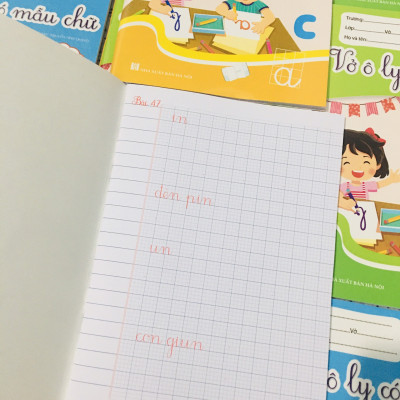 ó mẫu chữ
NHÀ XUẤT BẢN HÀ NỘI
C
a
Trường:
Lớp: Vở
Họ và tên:
Vở ô ly
Bài 47
in
đèn pin
un
con giun
XUẤT BẢN HÀ NỘI
Vở
ô ly có